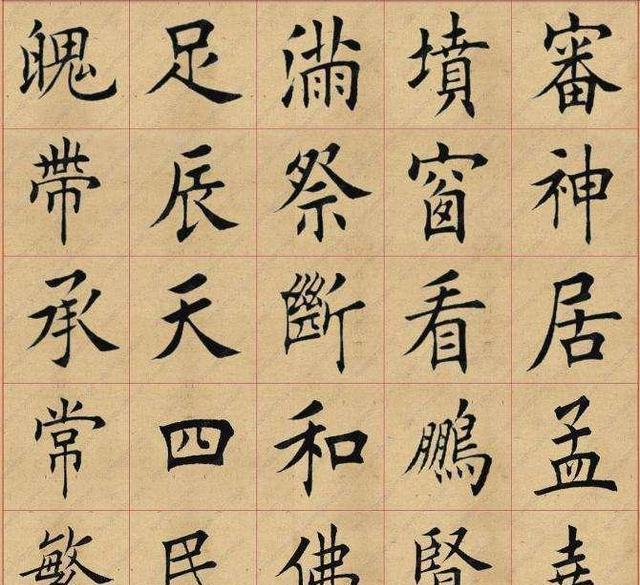 魄足滿墳審
帶辰祭窗神
承天斷看居
常四和鵬孟
繁民佛賢